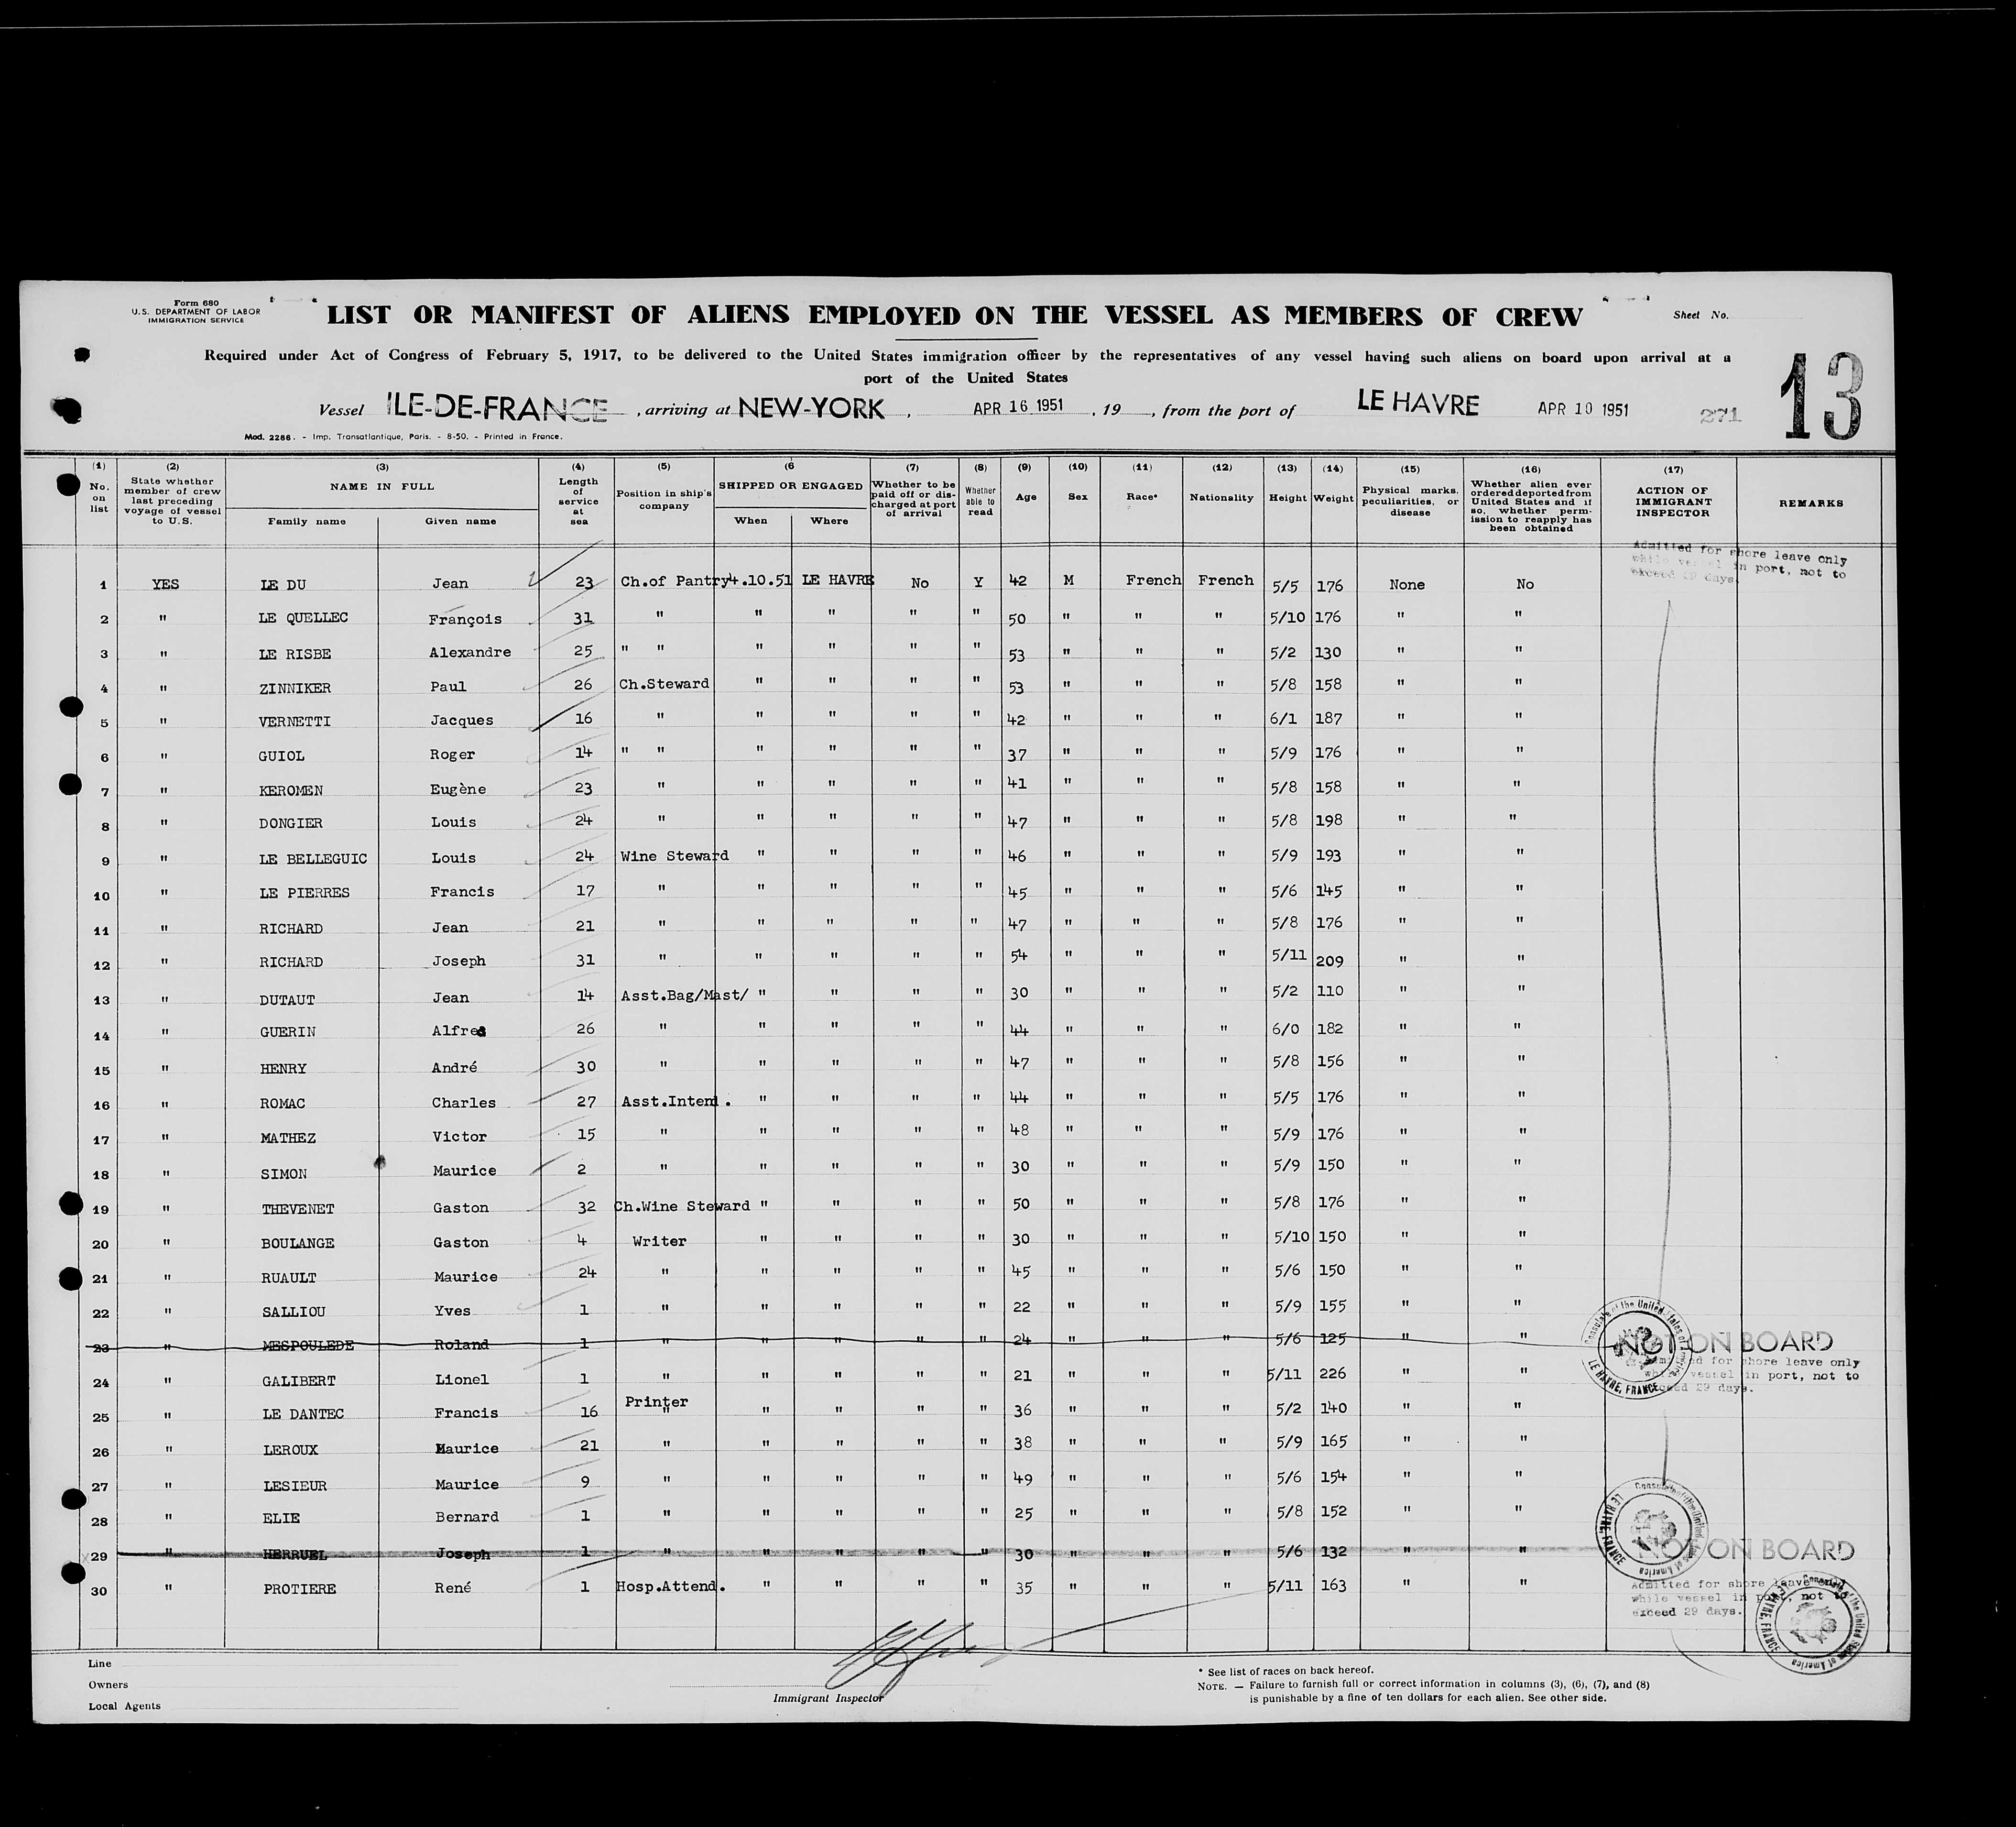 Form 680
U.S. DEPARTMENT OF LABOR
IMMIGRATION SERVICE
LIST OR MANIFEST OF ALIENS EMPLOYED ON THE VESSEL AS MEMBERS OF CREW
Sheet No.
Required under Act of Congress of February 5, 1917, to be delivered to the United States immigration officer by the representatives of any vessel having such aliens on board upon arrival at a
port of the United States
13
Vessel ILE-DE-FRANCE, arriving at NEW-YORK, APR 16 1951, 19, from the port of LE HAVRE APR 10 1951 271
Mod. 2286. - Imp. Transatlantique, Paris. - 8-50. - Printed in France.
(1) No. on list (2) State whether member of crew last preceding voyage of vessel to U.S. (3) NAME IN FULL Family name Given name (4) Length of service at sea (5) Position in ship's company (6 SHIPPED OR ENGAGED When Where (7) Whether to be paid off or discharged at port of arrival (8) Whether able to read (9) Age (10) Sex (11) Race* (12) Nationality (13) Height (14) Weight (15) Physical marks, peculiarities, or disease (16) Whether alien ever ordered deported from United States and if so, whether permission to reapply has been obtained (17) ACTION OF IMMIGRANT INSPECTOR REMARKS
Admitted for shore leave only
while vessel in port, not to
exceed 29 days.
1 YES LE DU Jean 23 Ch.of Pantry 4.10.51 LE HAVRE No Y 42 M French French 5/5 176 None No
2 " LE QUELLEC François 31 " " " " " 50 " " " 5/10 176 " "
3 " LE RISBE Alexandre 25 " " " " " " 53 " " " 5/2 130 " "
4 " ZINNIKER Paul 26 Ch.Steward " " " " 53 " " " 5/8 158 " "
5 " VERNETTI Jacques 16 " " " " " 42 " " " 6/1 187 " "
6 " GUIOL Roger 14 " " " " " " 37 " " " 5/9 176 " "
7 " KEROMEN Eugène 23 " " " " " 41 " " " 5/8 158 " "
8 " DONGIER Louis 24 " " " " " 47 " " " 5/8 198 " "
9 " LE BELLEGUIC Louis 24 Wine Steward " " " " 46 " " " 5/9 193 " "
10 " LE PIERRES Francis 17 " " " " " 45 " " " 5/6 145 " "
11 " RICHARD Jean 21 " " " " " 47 " " " 5/8 176 " "
12 " RICHARD Joseph 31 " " " " " 54 " " " 5/11 209 " "
13 " DUTAUT Jean 14 Asst.Bag/Mast/ " " " " 30 " " " 5/2 110 " "
14 " GUERIN Alfred 26 " " " " " 44 " " " 6/0 182 " "
15 " HENRY André 30 " " " " " 47 " " " 5/8 156 " "
16 " ROMAC Charles 27 Asst.Intend. " " " " 44 " " " 5/5 176 " "
17 " MATHEZ Victor 15 " " " " " 48 " " " 5/9 176 " "
18 " SIMON Maurice 2 " " " " " 30 " " " 5/9 150 " "
19 " THEVENET Gaston 32 Ch.Wine Steward " " " " 50 " " " 5/8 176 " "
20 " BOULANGE Gaston 4 Writer " " " " 30 " " " 5/10 150 " "
21 " RUAULT Maurice 24 " " " " " 45 " " " 5/6 150 " "
22 " SALLIOU Yves 1 " " " " " 22 " " " 5/9 155 " "
23 " MESPOULEDE Roland 1 " " " " " 24 " " " 5/6 125 " " NOT ON BOARD
Consulate of the United States of America LE HAVRE, FRANCE
Admitted for shore leave only
while vessel in port, not to
exceed 29 days.
24 " GALIBERT Lionel 1 " " " " " 21 " " " 5/11 226 " "
25 " LE DANTEC Francis 16 Printer " " " " " 36 " " " 5/2 140 " "
26 " LEROUX Maurice 21 " " " " " 38 " " " 5/9 165 " "
27 " LESIEUR Maurice 9 " " " " " 49 " " " 5/6 154 " "
28 " ELIE Bernard 1 " " " " " 25 " " " 5/8 152 " "
Consulate of the United States of America LE HAVRE, FRANCE
29 " HERRUEL Joseph 1 " " " " " 30 " " " 5/6 132 " " NOT ON BOARD
30 " PROTIERE René 1 Hosp.Attend. " " " " 35 " " " 5/11 163 " "
Admitted for shore leave only
while vessel in port, not to
exceed 29 days.
Consulate of the United States of America LE HAVRE, FRANCE
Line
Owners
Local Agents
Immigrant Inspector
* See list of races on back hereof.
NOTE. — Failure to furnish full or correct information in columns (3), (6), (7), and (8)
is punishable by a fine of ten dollars for each alien. See other side.